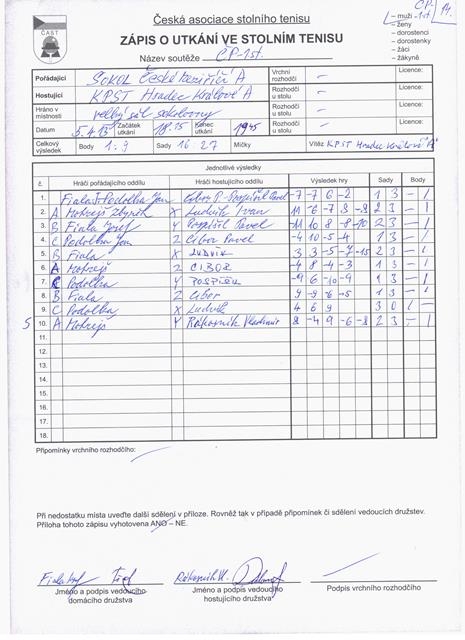 Česká asociace stolního tenisu
ČAST
ZÁPIS O UTKÁNÍ VE STOLNÍM TENISU
Název soutěže ČP-1st.
ČP 14.
– muži -1st.
– ženy
– dorostenci
– dorostenky
– žáci
– žákyně
Pořádající SOKOL České Meziříčí A Vrchní rozhodčí – Licence:
Hostující KPST Hradec Králové A Rozhodčí u stolu – Licence:
Hráno v místnosti velký sál sokolovny Rozhodčí u stolu – Licence:
Datum 5.4.13 Začátek utkání 18.15 Konec utkání 19 45 Rozhodčí u stolu – Licence:
Celkový výsledek Body 1:9 Sady 16 27 Míčky Vítěz KPST Hradec Králové "A"
Jednotlivé výsledky
č. Hráči pořádajícího oddílu Hráči hostujícího oddílu Výsledek hry Sady Body
1. Fiala J.-Podolka Jan Cibor P.-Pospíšil Pavel -7 -7 6 -2 1 3 – 1
2. A Mokrejš Zbyněk X Ludvík Ivan 11 -6 -7 9 -9 2 3 – 1
3. B Fiala Josef Y Pospíšil Pavel -11 10 8 -8 -10 2 3 – 1
4. C Podolka Jan Z Cibor Pavel -4 10 -5 -4 1 3 – 1
5. B Fiala X LUDVÍK 3 3 -5 -7 -15 2 3 – 1
6. A Mokrejš Z CIBOR -4 8 -4 -3 1 3 – 1
7. C Podolka Y POSPÍŠIL -9 6 -10 -9 1 3 – 1
8. B Fiala Z Cibor 9 -9 -6 -5 1 3 – 1
9. C Podolka X Ludvík 4 6 9 3 0 1 –
5 10. A Mokrejš Y Rákosník Vladimír 8 -4 9 -6 -8 2 3 – 1
11.
12.
13.
14.
15.
16.
17.
18.
Připomínky vrchního rozhodčího:
Při nedostatku místa uveďte další sdělení v příloze. Rovněž tak v případě připomínek či sdělení vedoucích družstev.
Příloha tohoto zápisu vyhotovena ANO – NE.
Fiala Josef Rákosník V.
Jméno a podpis vedoucího domácího družstva
Jméno a podpis vedoucího hostujícího družstva
Podpis vrchního rozhodčího